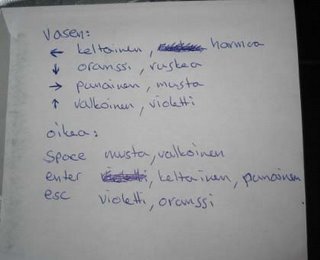 vasen:
← keltainen, harmaa
↓ oranssi, ruskea
→ punainen, musta
↑ valkoinen, violetti
oikea:
space musta, valkoinen
enter , keltainen, punainen
esc violetti, oranssi